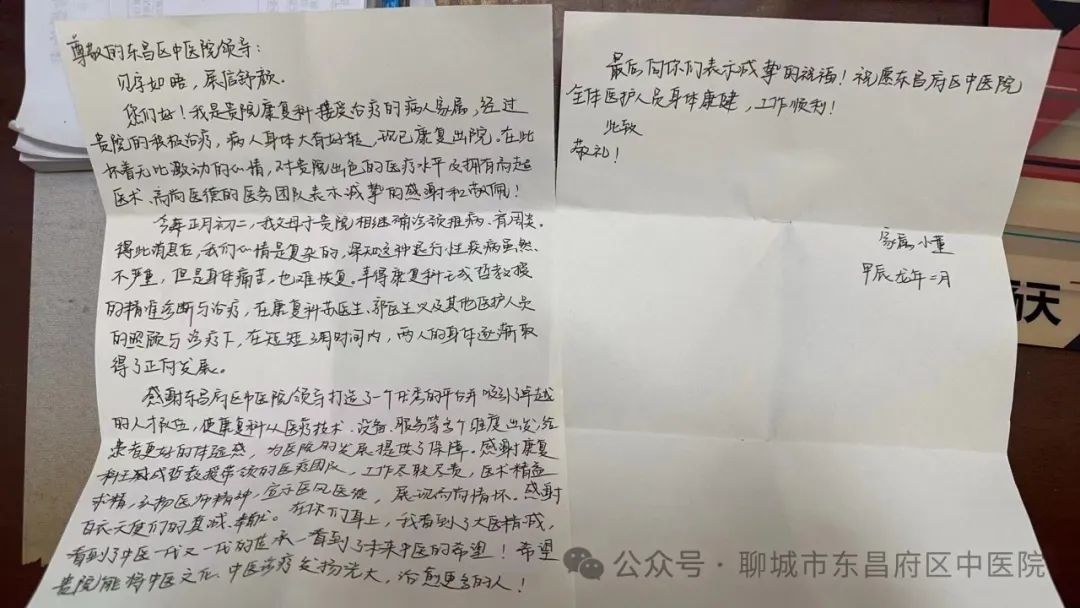 尊敬的东昌区中医院领导：
见字如晤，展信舒颜。
您们好！我是贵院康复科接受治疗的病人家属，经过
贵院的积极治疗，病人身体大有好转，现已康复出院。在此
怀着无比激动的心情，对贵院出色的医疗水平及拥有高超
医术、高尚医德的医务团队表示诚挚的感谢和敬佩！
今年正月初二，我父母于贵院相继确诊颈椎病、肩周炎。
得此消息后，我们心情是复杂的，深知这种退行性疾病虽然
不严重，但是身体痛苦，也难恢复。幸得康复科王成哲教授
的精准诊断与治疗，在康复科苏医生、郭医生以及其他医护人员
的照顾与治疗下，在短短3周时间内，两人的身体逐渐取
得了正向发展。
感谢东昌府区中医院领导打造了一个优秀的平台并吸引了卓越
的人才队伍，使康复科从医疗技术、设备、服务等多个维度出发，给
患者更好的体验感，为医院的发展提供了保障。感谢康复
科王成哲教授带领的医疗团队，工作尽职尽责，医术精益
求精，弘扬医师精神，宣示医风医德，展现高尚情怀。感谢
白衣天使们的真诚、奉献。在你们身上，我看到了大医精诚，
看到了中医一代又一代的传承，看到了未来中医的希望！希望
贵院能将中医文化、中医诊疗发扬光大，治愈更多的人！
最后向你们表示诚挚的祝福！祝愿东昌府区中医院
全体医护人员身体康健，工作顺利！
此致
敬礼！
家属 小董
甲辰龙年二月
天
公众号·聊城市东昌府区中医院